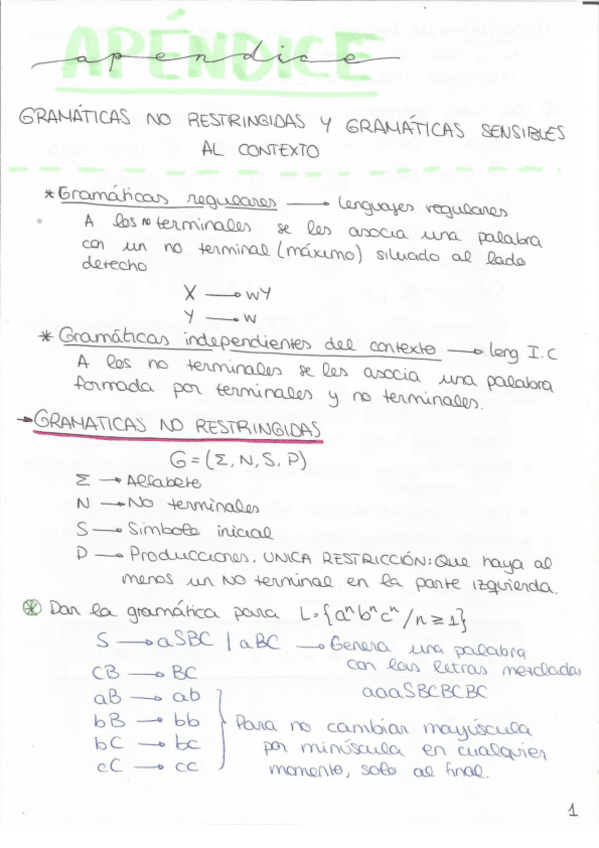 APÉNDICE
apendice
GRAMÁTICAS NO RESTRINGIDAS Y GRAMÁTICAS SENSIBLES
AL CONTEXTO
* Gramáticas regulares → Lenguajes regulares
A los no terminales se les asocia una palabra
con un no terminal (máximo) situado al lado
derecho
X → wY
Y → w
* Gramáticas independientes del contexto → leng I.C
A los no terminales se les asocia una palabra
formada por terminales y no terminales.
→ GRAMATICAS NO RESTRINGIDAS
G = (Σ, N, S, P)
Σ → Alfabeto
N → No terminales
S → Símbolo inicial
P → Producciones. UNICA RESTRICCIÓN: Que haya al
menos un NO terminal en la parte izquierda.
* Dar la gramática para L = {aⁿbⁿcⁿ / n ≥ 1}
S → aSBC | aBC → Genera una palabra
con las letras mezcladas
CB → BC
aaaSBCBCBC
aB → ab
bB → bb
Para no cambiar mayúscula
bC → bc
por minúscula en cualquier
cC → cc
momento, solo al final.
1